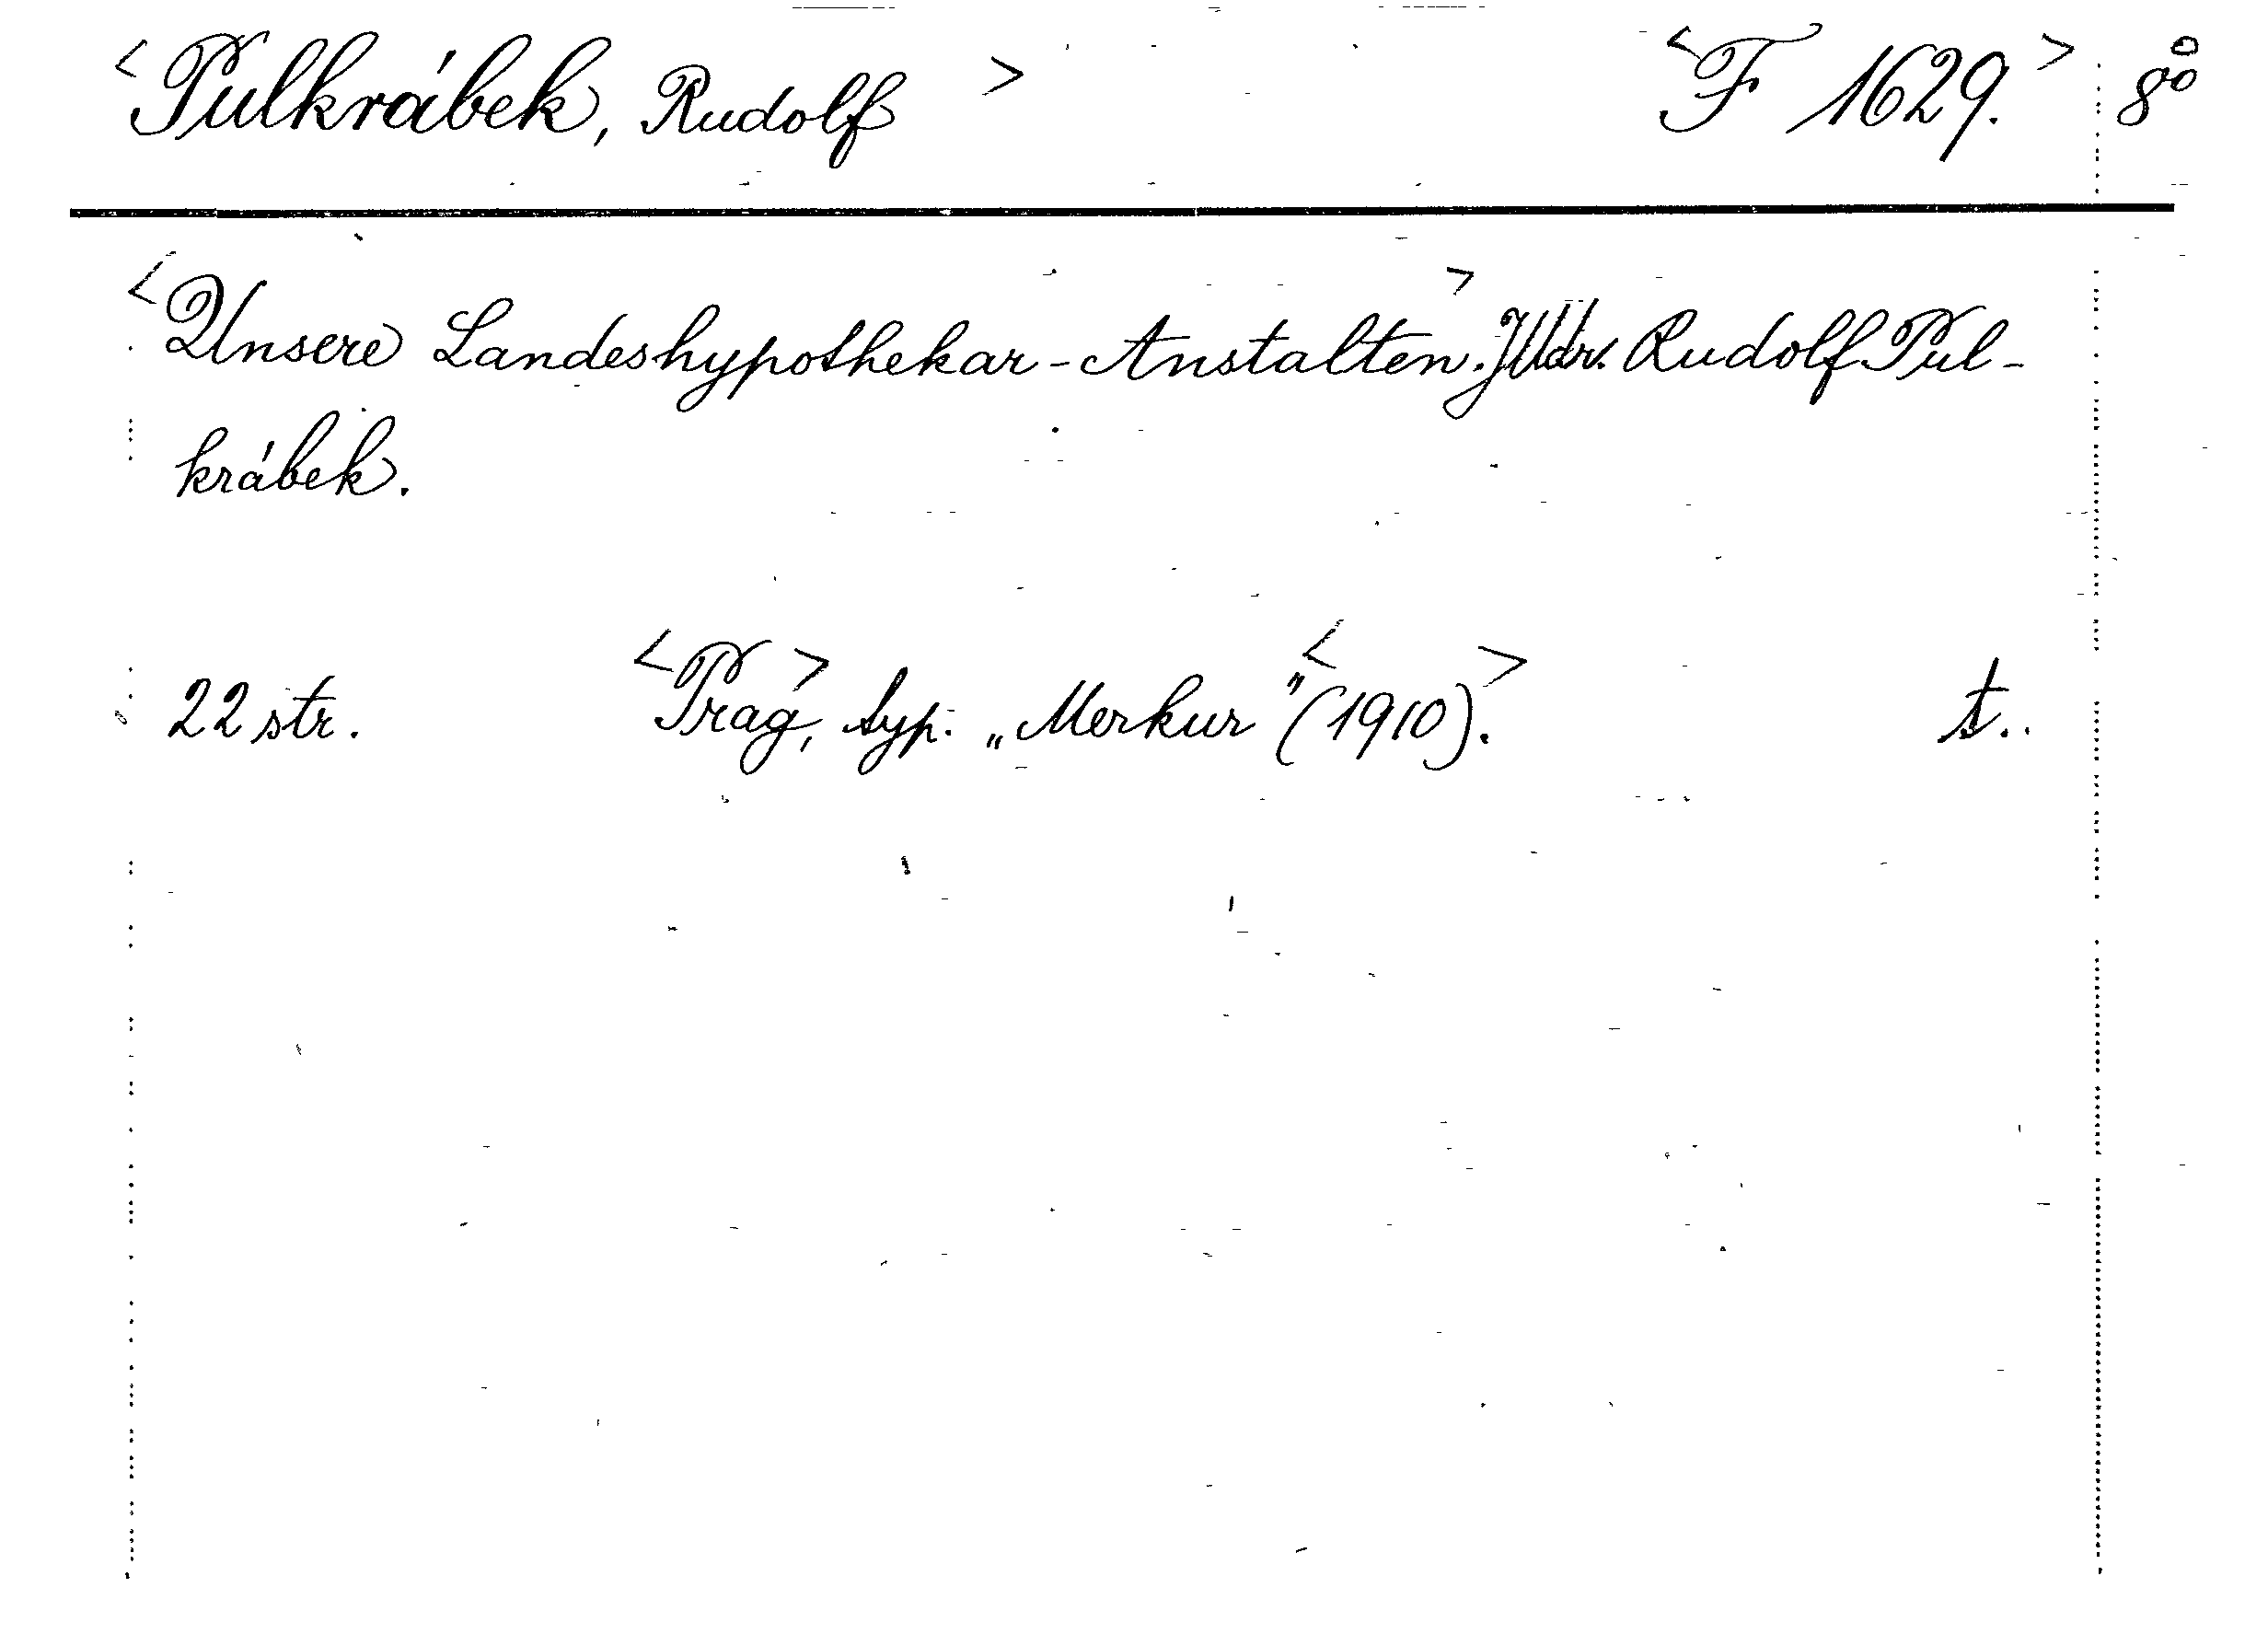 <Pulkrábek, Rudolf> <F 1629.> 8°
<Unsere Landeshypothekar-Anstalten.> JUdr. Rudolf Pul-
krábek.
22 str. <Prag>, typ. „Merkur" <(1910).> t..